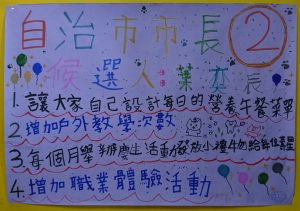 自治市市長 2
候選人葉亦辰
1. 讓大家自己設計每日的營養午餐菜單
2 增加戶外教學次數
3 每個月舉辦慶生活動發放小禮物給壽星
4. 增加職業體驗活動